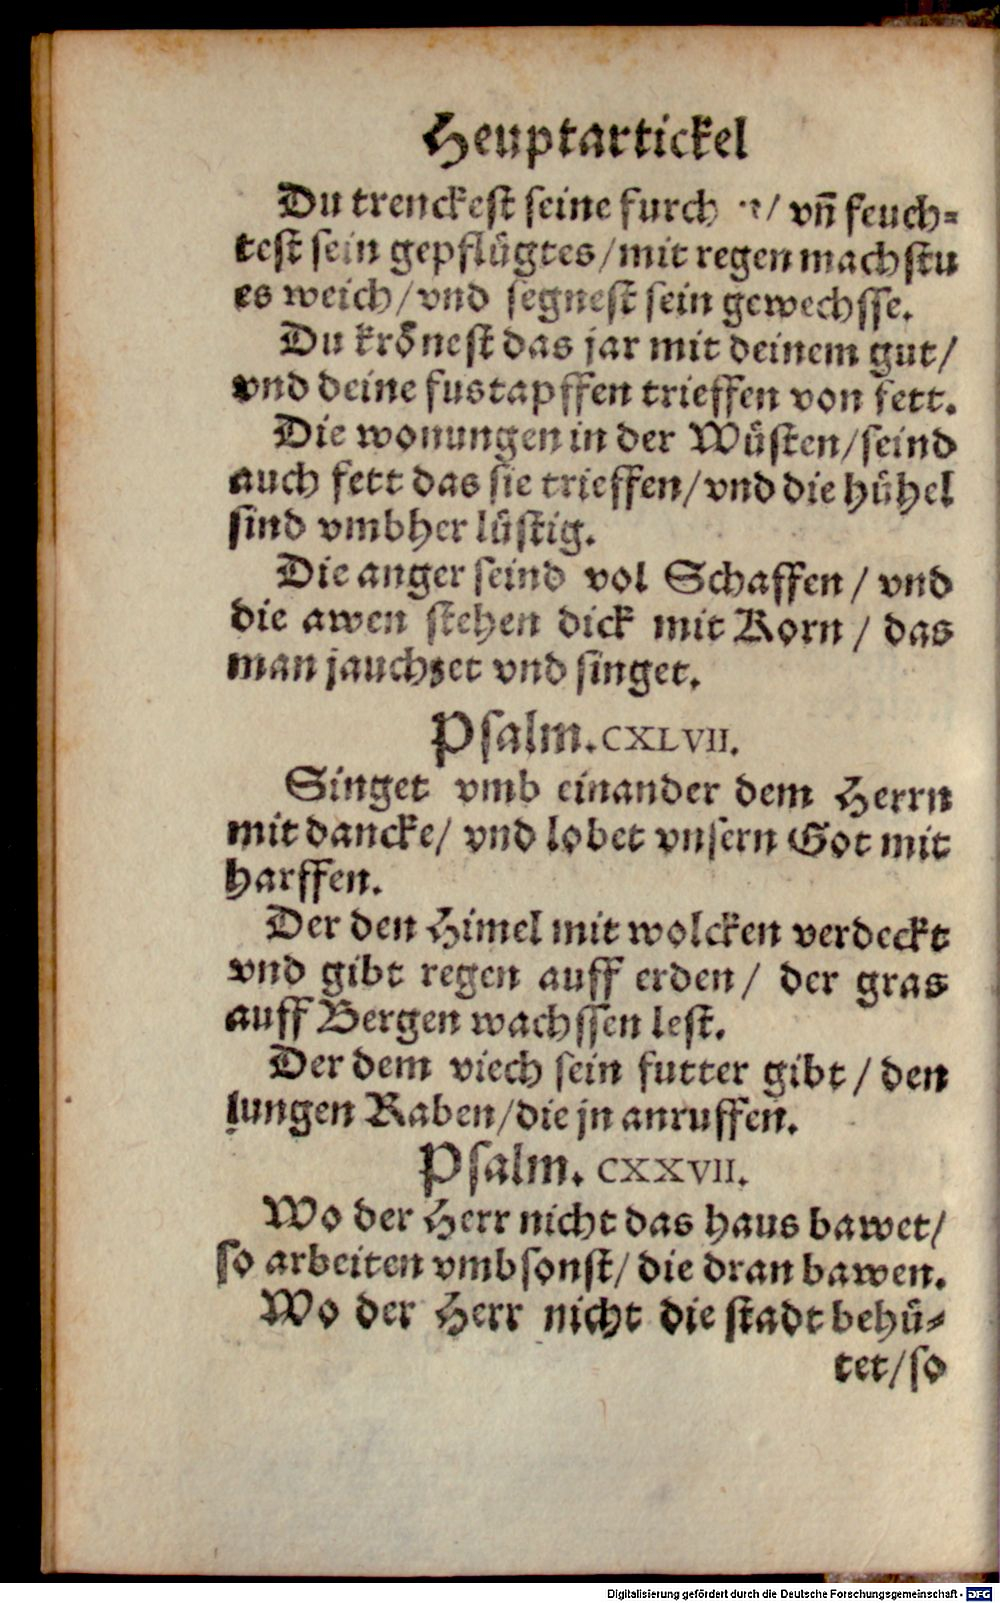 Heuptartickel
Du trenckest seine furch / vñ feuch=
test sein gepflügtes/mit regen machstu
es weich/vnd segnest sein gewechsse.
Du krönest das jar mit deinem gut/
vnd deine fustapffen trieffen von fett.
Die wonungen in der Wüsten/seind
auch fett das sie trieffen/vnd die hühel
sind vmbher lüstig.
Die anger seind vol Schaffen / vnd
die awen stehen dick mit Korn / das
man jauchzet vnd singet.
Psalm. CXLVII.
Singet vmb einander dem Herrn
mit dancke/ vnd lobet vnsern Got mit
harffen.
Der den Himel mit wolcken verdeckt
vnd gibt regen auff erden/ der gras
auff Bergen wachssen lest.
Der dem viech sein futter gibt / den
jungen Raben/die jn anruffen.
Psalm. CXXVII.
Wo der Herr nicht das haus bawet/
so arbeiten vmbsonst/ die dran bawen.
Wo der Herr nicht die stadt behü=
tet/so
Digitalisierung gefördert durch die Deutsche Forschungsgemeinschaft - DFG